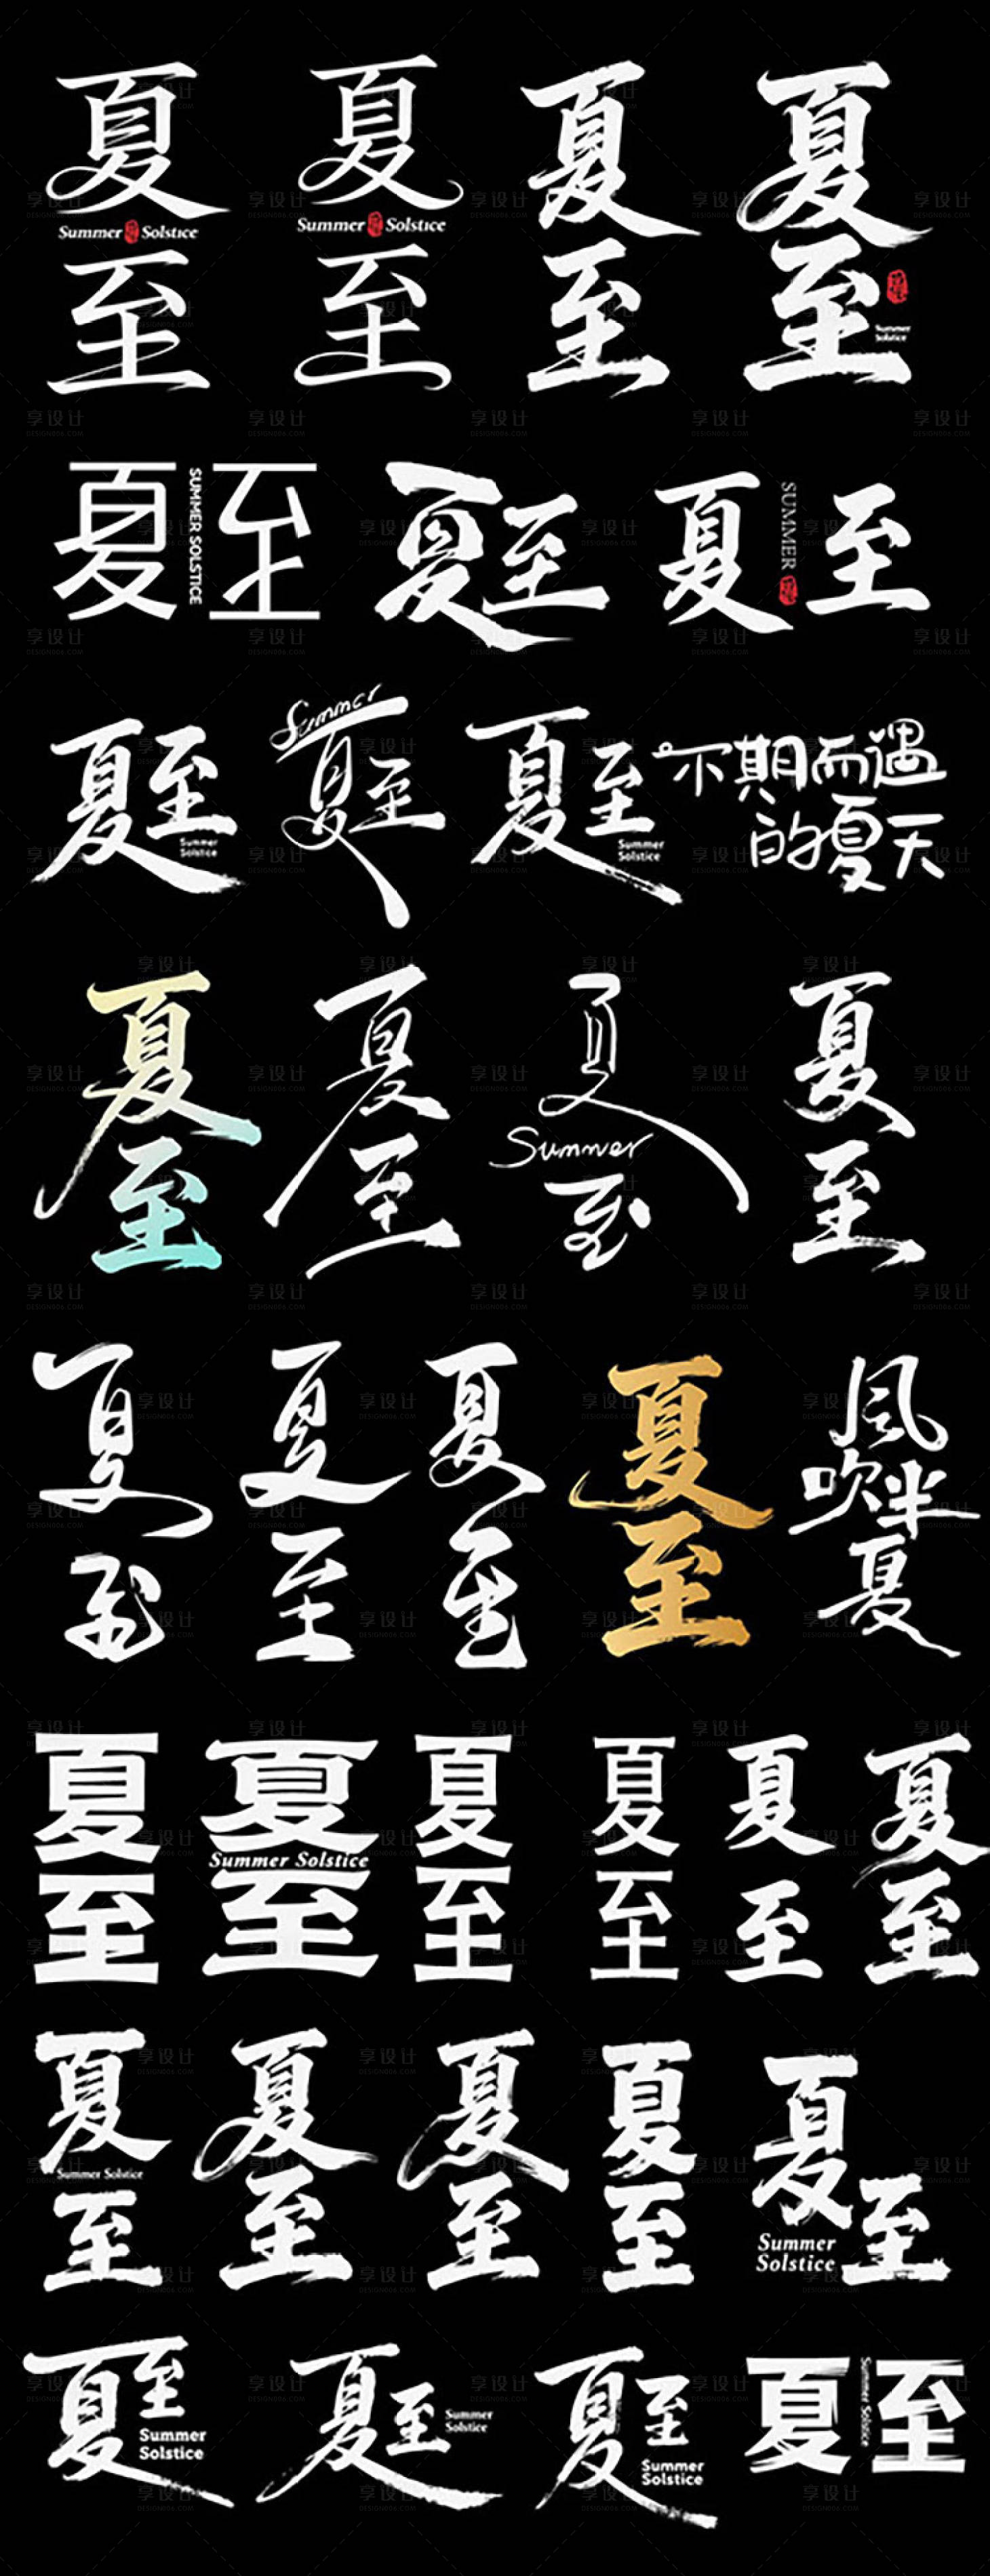 夏
Summer Solstice
至
夏
Summer Solstice
至
夏
至
夏
至
Summer
Solstice
夏至
SUMMER SOLSTICE
夏至
夏至
SUMMER
夏至
Summer
Solstice
Summer
夏至
夏至
Summer
Solstice
不期而遇
的夏天
夏
至
夏
至
夏
Summer
至
夏
至
夏
至
夏
至
夏
至
夏
至
风
吹半
夏
夏
至
夏
Summer Solstice
至
夏
至
夏
至
夏
至
夏
至
夏
Summer Solstice
至
夏
至
夏
至
夏
至
夏
至
Summer
Solstice
夏至
Summer
Solstice
夏至
Summer
Solstice
夏至
Summer
Solstice
夏至
Summer Solstice
享设计
DESIGN006.COM